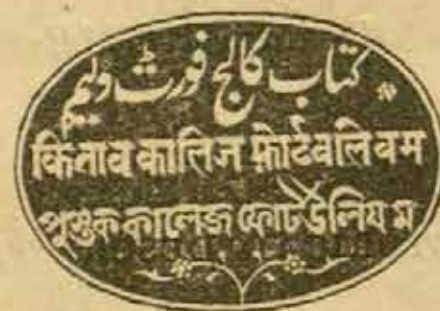 کتاب کالج فورٹ ولیم
किताब कालिज फ़ोर्टवलियम
পুস্তক কালেজ ফোর্ট উলিযম